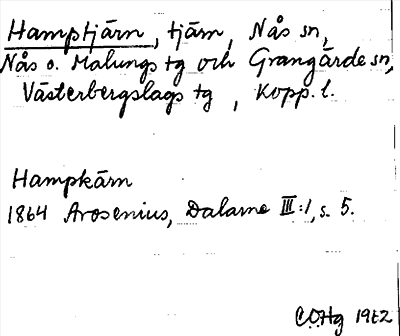 Hamptjärn, tjärn, Nås sn,
Nås o. Malungs tg och Grangärde sn,
Västerbergslags tg, Kopp. l.
Hampkärn
1864 Arosenius, Dalarne III:1, s. 5.
C.O.Hg 1962